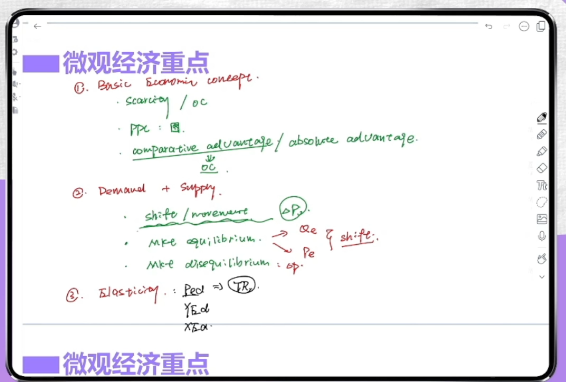 微观经济重点
①. Basic Economic concept.
· scarcity / OC
· PPC : 图.
· comparative advantage / absolute advantage.
OC.
② Demand + Supply.
· shift / movement ΔP.
· Mkt equilibrium. → Qe
→ Pe } shift.
· Mkt disequilibrium : ΔP.
③. Elasticity. : Ped ⇒ TR.
YEd
XEd.
微观经济重点